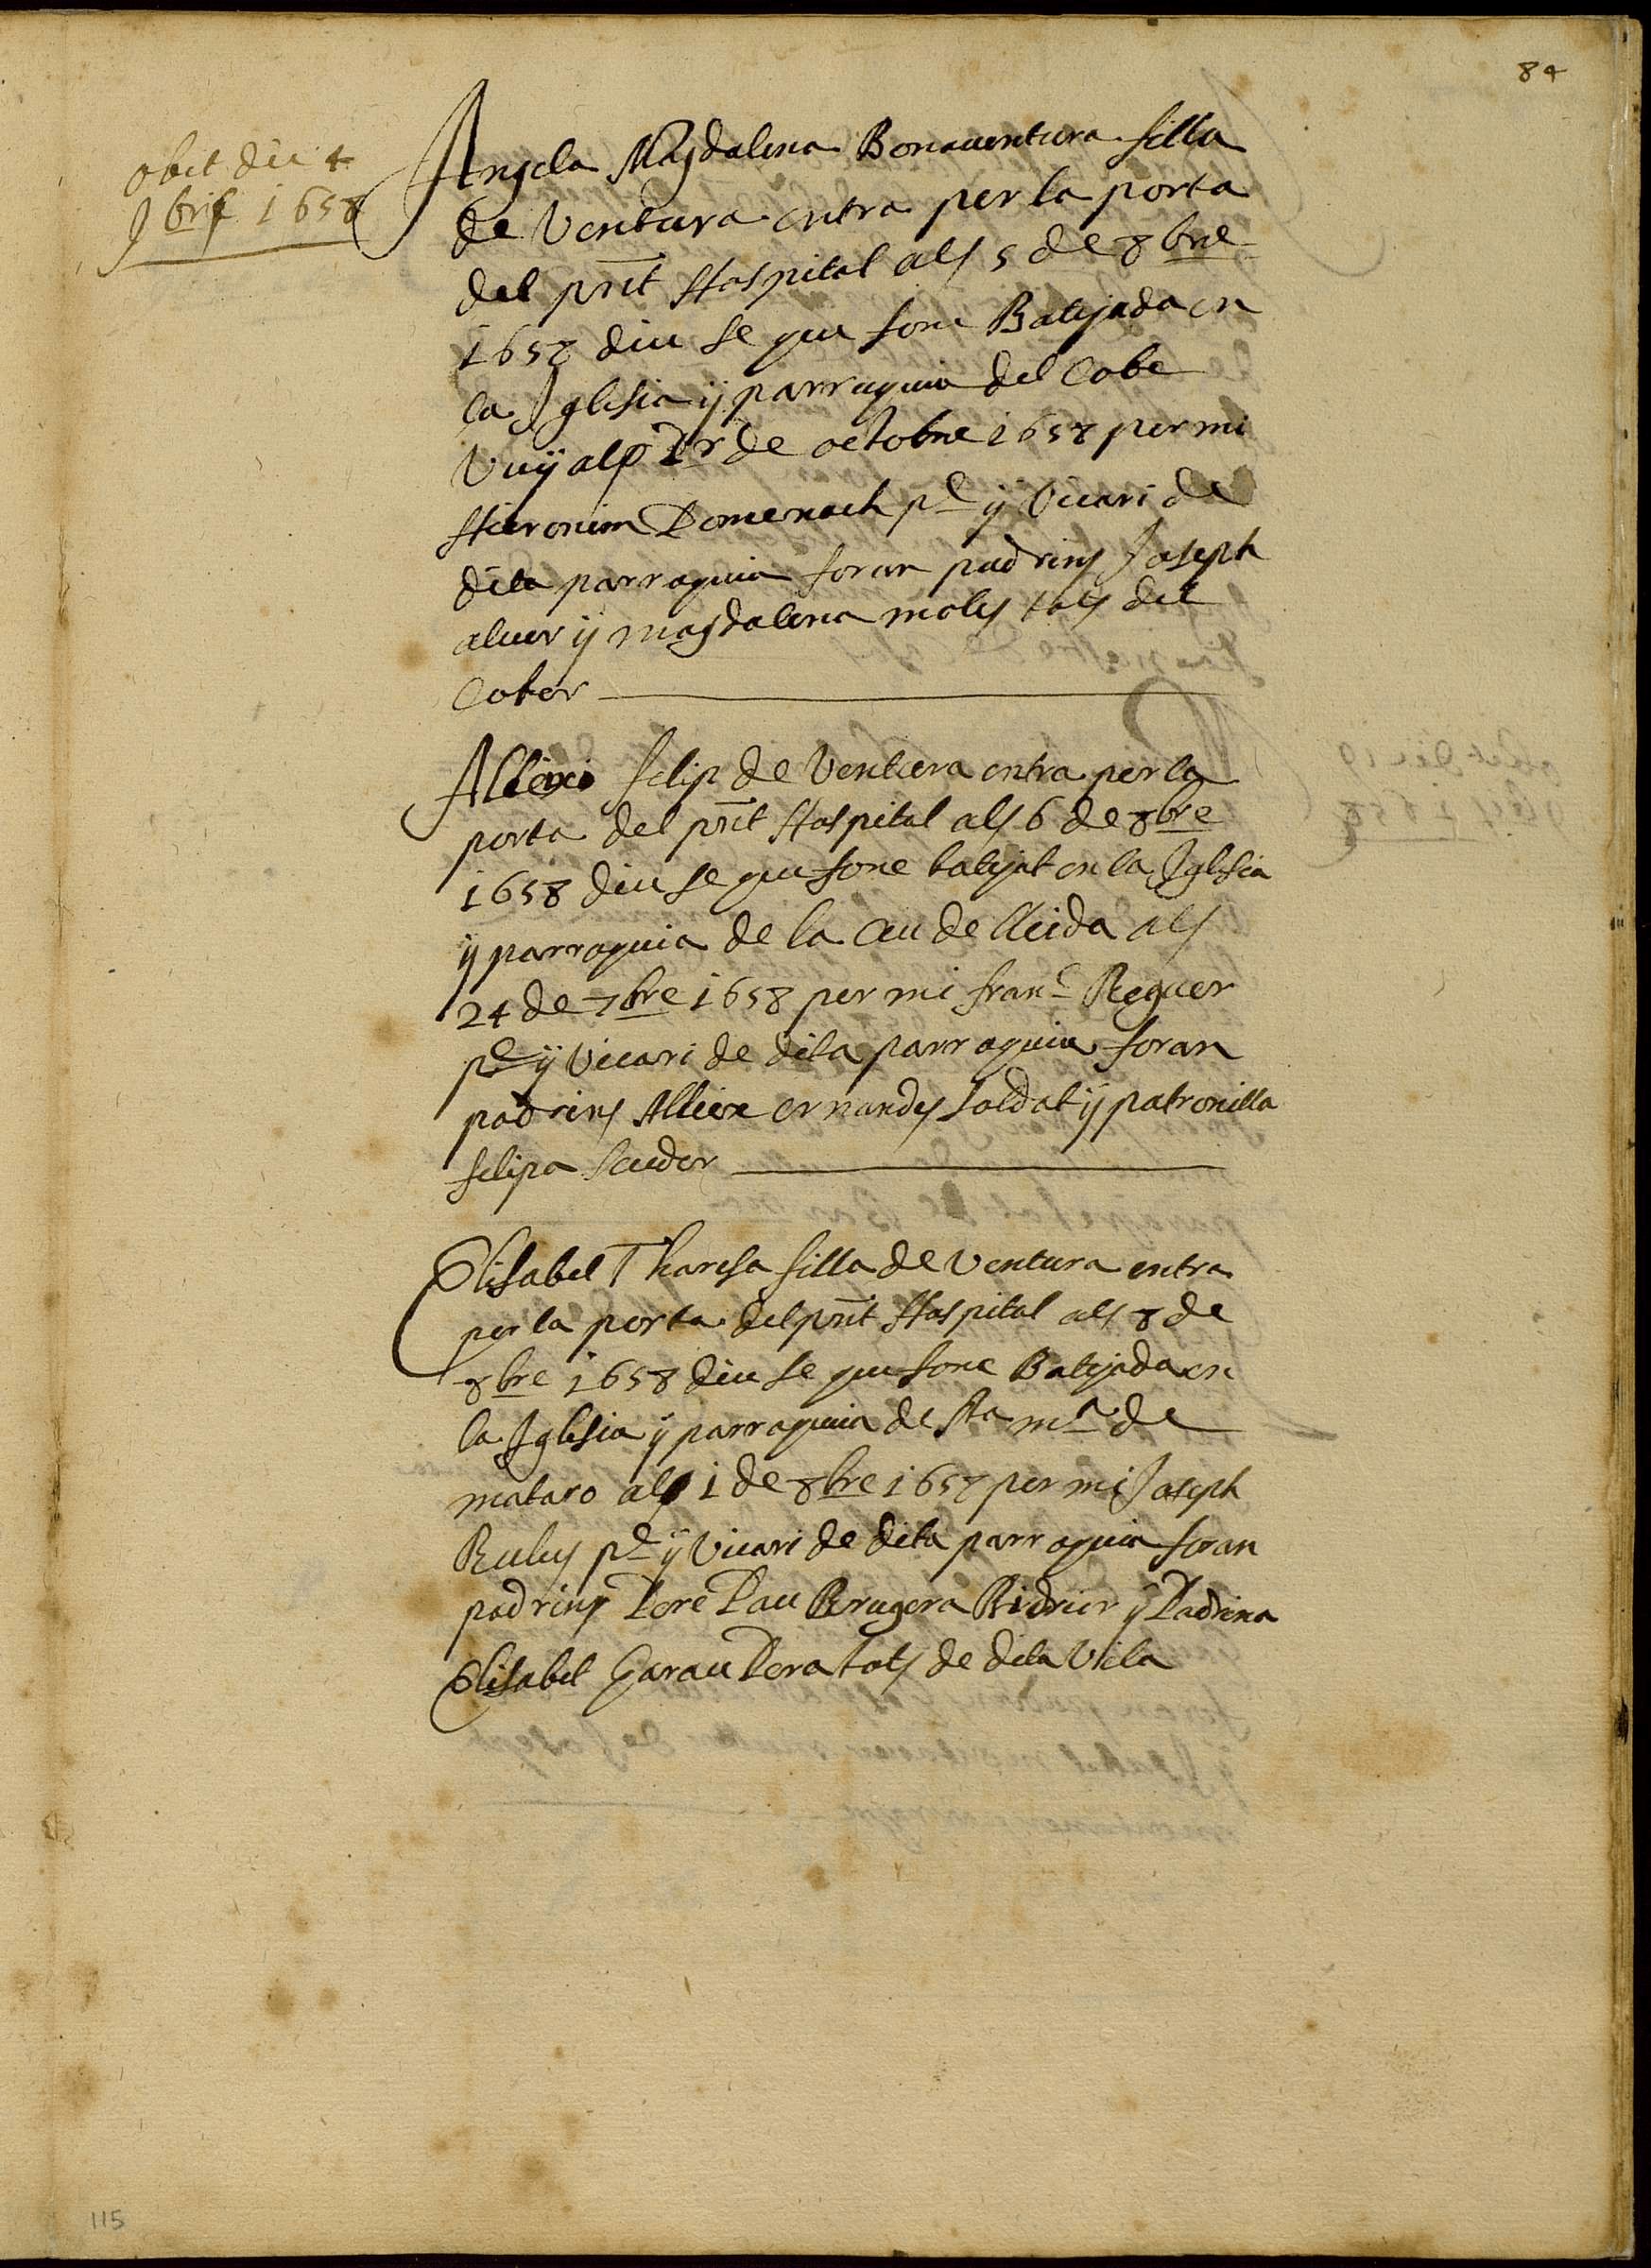 84
obit die 4
9bris 1658
Angela Magdalena Bonaventura filla
de Ventura entra per la porta
del pnt Hospital als 5 de 8bre
1658 diu se que fonc Batejada en
la Iglesia ÿ parraquia del Cobe
Vuÿ als Pr de octobre 1658 per mi
Hieronim Domenach pe ÿ Vicari de
dita parroquia foran padrins Joseph
aluer ÿ magdalena moles tots del
Cober
Allexo felip de Ventura entra per la
porta del pnt Hospital als 6 de 8bre
1658 diu se que fonc batejat en la Iglesia
ÿ parroquia de la Ceu de lleida als
24 de 7bre 1658 per mi franc Reguer
pe ÿ Vicari de dita parroquia foran
padrins Allex ernandes soldat ÿ patronilla
felipa scuder
Elisabel Tharesa filla de Ventura entra
per la porta del pnt Hospital als 8 de
8bre 1658 diu se que fonc Batejada en
la Iglesia ÿ parroquia de Sta ma de
mataro als 1 de 8bre 1658 per mi Joseph
Rulus pe ÿ Vicari de dita parroquia foran
padrins Pere Pau Brugera Bidrier ÿ Padrina
Elisabet Garau Pera tots de dita Vila
115